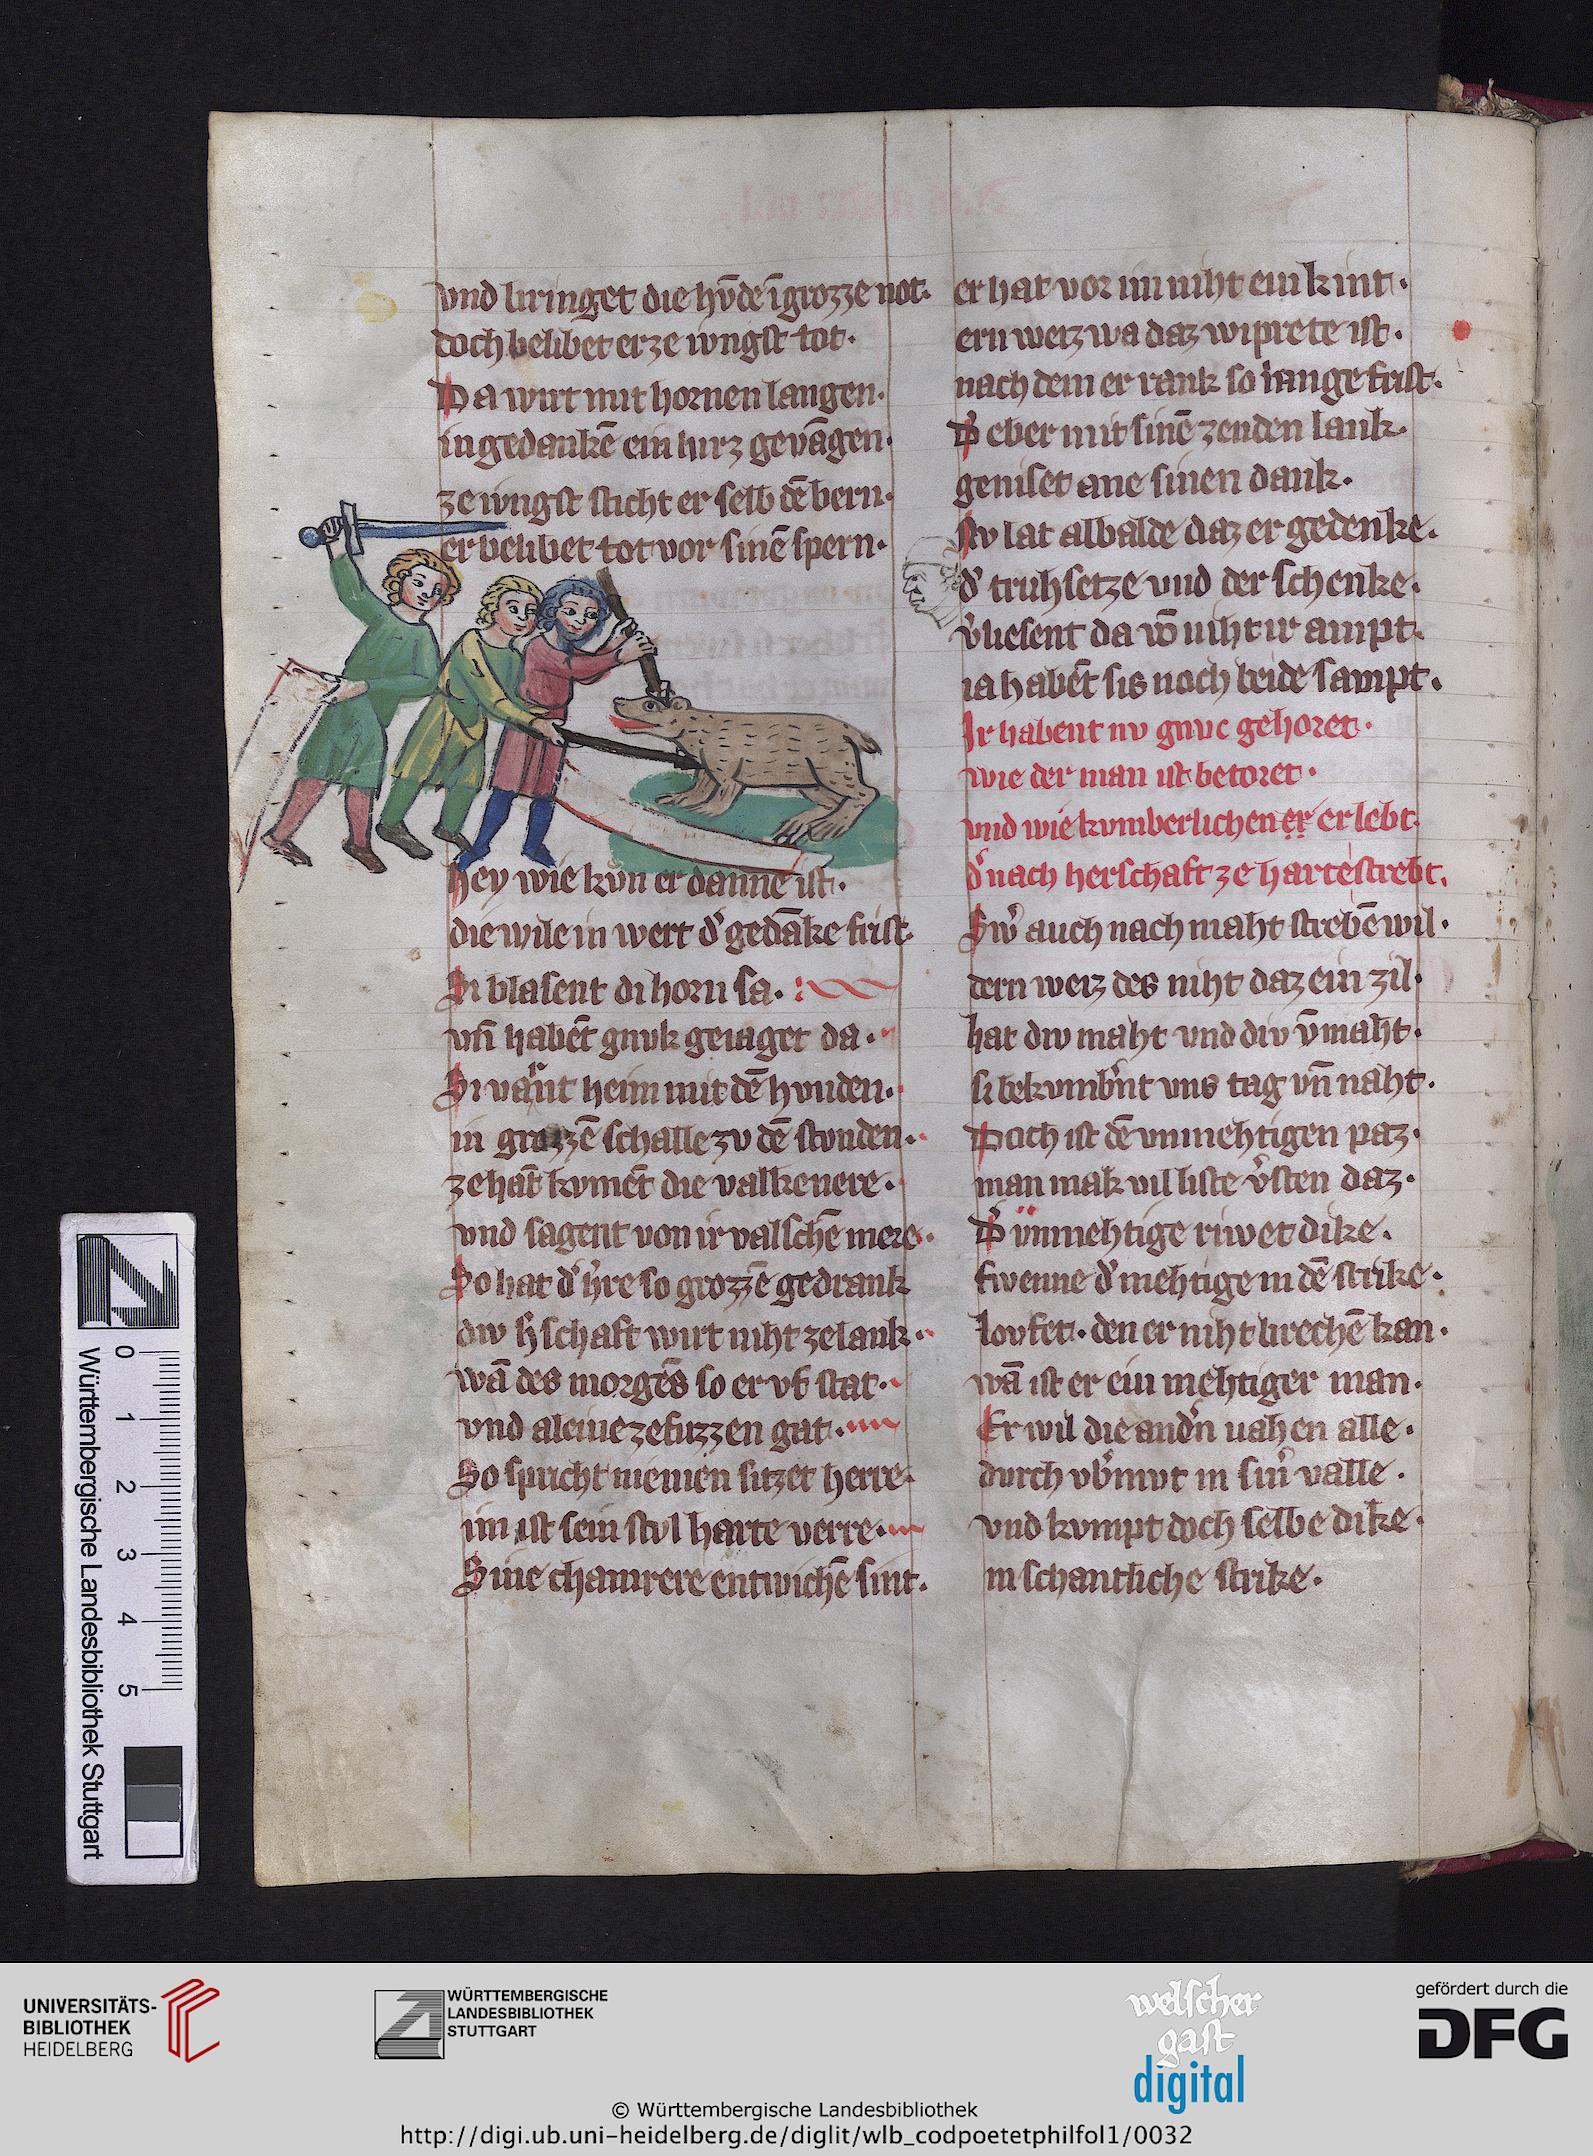 vnd bringet die hv̄de ī grozze not·
doch belibet er ze ivngst tot·
Da wirt mit hornen langen·
in gedankē ein hirz gevāgen·
ze ivngst sticht er selb dē bern·
er belibet tot vor sinē spern·
hey wie kvn er danne ist·
die wile in wert d' gedāke frist·
Si blasent di horn sa·
vn̄ habēt gnvk geiaget da·
Si varnt heim mit dē hvnden·
in grozzē schalle zv dē stvnden·
zehāt kvmēt die valkenere·
vnd sagent von ir valschē mere·
So hat d' h're so grozzē gedrank
div h'schaft wirt niht ze lank·
wā des morgēs so er vf stat·
vnd aleine ze fuzzen gat·
So spricht niemen sitzet herre·
im ist sein stvl harte verre·
Sine chamrere entwichē sint·
er hat vor im niht ein kint·
ern weiz wa daz wiprete ist·
nach dem er rank so lange frist·
D' eber mit sinē zenden lank·
geniset ane sinen dank·
Nv lat albalde daz er gedenke·
d' truhsetze vnd der schenke·
v'liesent da vō niht ir ampt·
ia habēt sis noch beide sampt·
Ir habent nv gnvc gehoret·
wie der man ist betoret·
vnd wie kvmberlichen er er lebt·
d' nach herschaft ze harte strebt·
Sw' auch nach maht strebē wil·
dern weiz des niht daz ein zil·
hat div maht vnd div v̄maht·
si bekvmb'nt vns tag vn̄ naht·
Doch ist dē vnmehtigen paz·
man mak vil liste v'sten daz·
D' vnmehtige rivvet dike·
swenne d' mehtige in dē strike·
lovfet· den er niht brechē kan·
wā ist er ein mehtiger man·
Er wil die and'n vahen alle·
dvrch vb'mvt in sin' valle·
vnd kvmpt doch selbe dike·
in schantliche strike·
Württembergische Landesbibliothek Stuttgart
0 1 2 3 4 5
UNIVERSITÄTS-
BIBLIOTHEK
HEIDELBERG
WÜRTTEMBERGISCHE
LANDESBIBLIOTHEK
STUTTGART
welscher
gast
digital
gefördert durch die
DFG
© Württembergische Landesbibliothek
http://digi.ub.uni-heidelberg.de/diglit/wlb_codpoetetphilfol1/0032